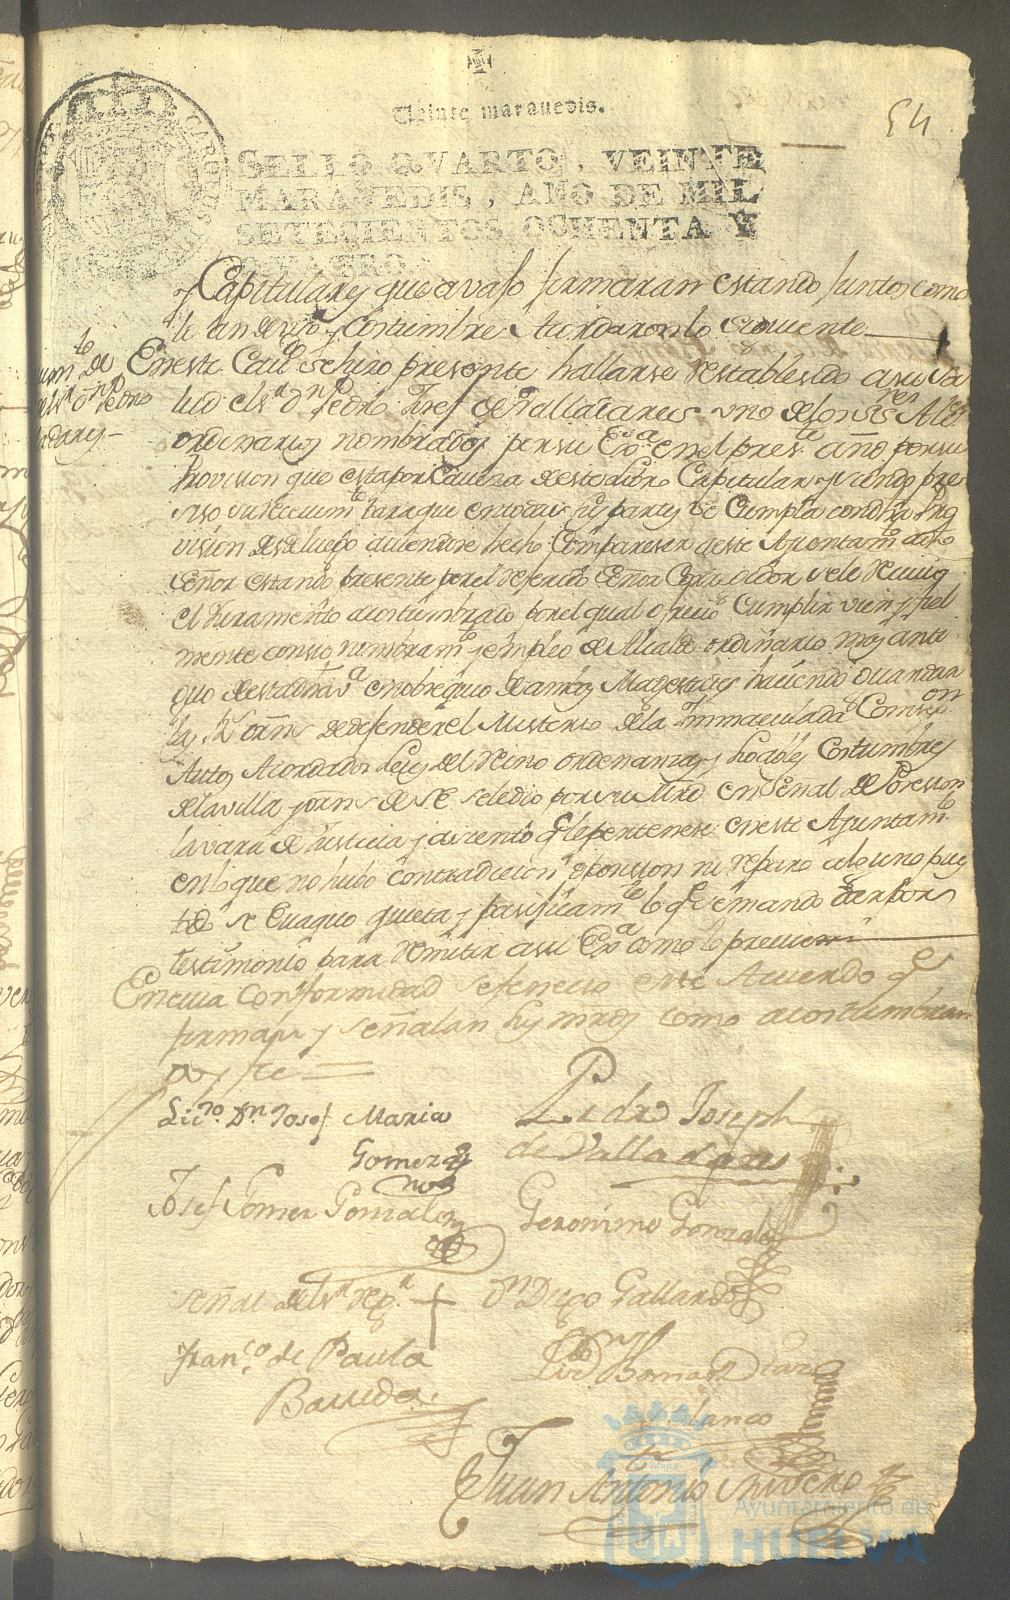 54
Veinte maravedis.
SELLO QVARTO, VEINTE
MARAVEDIS, AÑO DE MIL
SETECIENTOS OCHENTA Y
QVATRO.
y Capitulares que avaso firmaran estando Juntos como
lo an de uso y Costumbre Acordaron lo siguiente
En este Cavdo se hizo presente hallarse restablesido a su sa
lud el sr dn Pedro Josef de Valladares uno de los Sres Alcdes
ordinarios nombrados por su Exa en el preste año por su
Provision que esta por Cavesa de este Libro Capitular y siendo pre
siso su recevimto para que en todas sus partes se Cumpla con dha Pro
vision desde luego aviendose hecho Compareser a este Ayuntamto dho
Señor estando presente por el referido Señor Correxidor se le recivio
el Juramento acostumbrado por el qual ofrecio Cumplir vien y fiel
mente con su nombramto y empleo de Alcalde ordinario mas anti
guo de esta dha Va en obsequio de ambas Magestades haciendo Guardar
las Rs orns de defender el Misterio de la Immaculada Consepon
Autos Acordados Leyes del Reino ordenanzas y loables Costumbres
de la villa y orns de S.E. se le dio por su Mrd en Señal de Posession
la vara de Justicia y asiento q le pertenese en este Ayuntamto
en lo que no hubo contradicion oposision ni reparo alguno pues
todo se Evaquo quieta y pasificamte lo qe se mando dar por
testimonio para remitir a su Exa como lo previene
En cuia Conformidad se fenecio este Acuerdo qe
firman y señalan sus mrds como acostumbran
doy fe =
Licdo. Dn. Josef Maria
Gomez
Pedro Joseph
de Valladares
Josef Gomez Gonzalez
Geronimo Gonzalez
Señal del sr regr. +
Dn Diego Gallardo
Franco de Paula
Barreda.
Licdo Dn Roman Diaz
Blanco
Juan Antonio
Ayuntamiento de
HUELVA